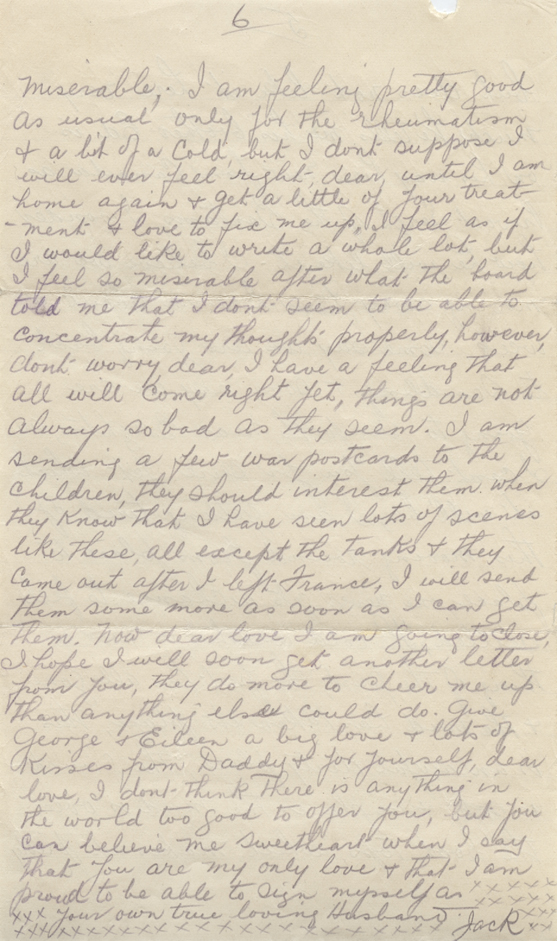 6
miserable, I am feeling pretty good
as usual only for the rheumatism
& a bit of a cold, but I dont suppose I
will ever feel right, dear, until I am
home again & get a little of your treat-
-ment & love to fix me up, I feel as if
I would like to write a whole lot, but
I feel so miserable after what the board
told me that I dont seem to be able to
concentrate my thoughts properly, however,
dont worry dear, I have a feeling that
all will come right yet, things are not
always so bad as they seem. I am
sending a few war postcards to the
children, they should interest them when
they know that I have seen lots of scenes
like these, all except the tanks & they
came out after I left France, I will send
them some more as soon as I can get
them. Now dear love I am going to close,
I hope I will soon get another letter
from you, they do more to cheer me up
than anything else could do. Give
George & Eileen a big love & lots of
kisses from Daddy & for yourself, dear
love, I dont think there is anything in
the world too good to offer you, but you
can believe me sweetheart when I say
that you are my only love & that I am
proud to be able to sign myself as xxxxx
xxx your own true loving Husband Jack xx
xxxxxxxxxxxxxxxxxxxx